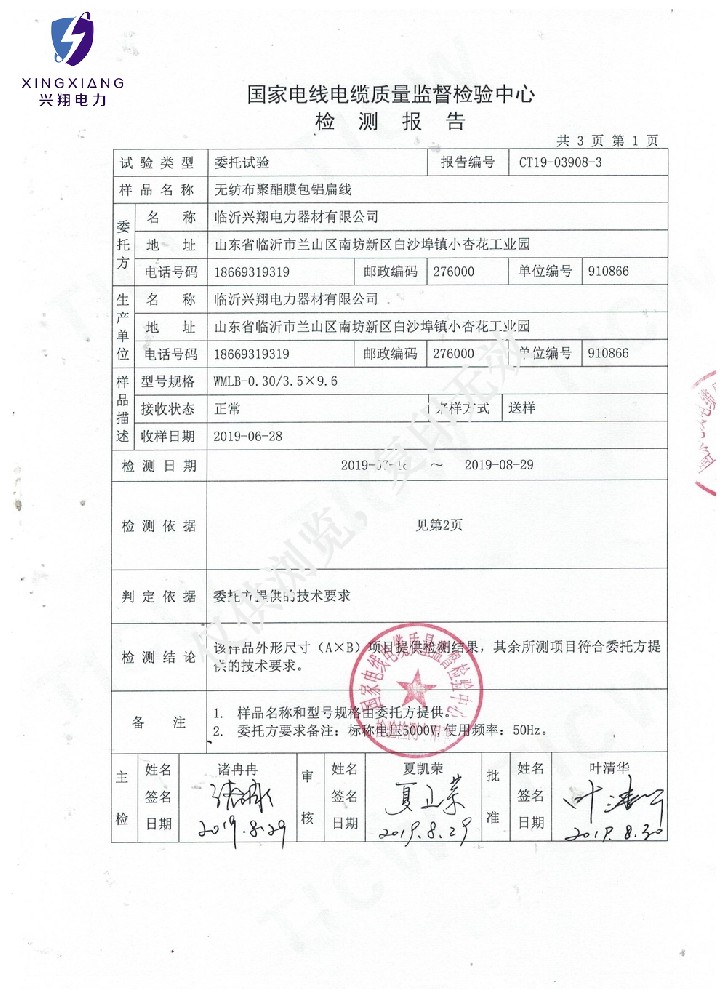 XINGXIANG
兴翔电力
国家电线电缆质量监督检验中心
检 测 报 告
共 3 页 第 1 页
试 验 类 型 委托试验 报告编号 CT19-03908-3
样 品 名 称 无纺布聚酯膜包铝扁线
委托方
名 称 临沂兴翔电力器材有限公司
地 址 山东省临沂市兰山区南坊新区白沙埠镇小杏花工业园
电话号码 18669319319 邮政编码 276000 单位编号 910866
生产单位
名 称 临沂兴翔电力器材有限公司
地 址 山东省临沂市兰山区南坊新区白沙埠镇小杏花工业园
电话号码 18669319319 邮政编码 276000 单位编号 910866
样品描述
型号规格 WMLB-0.30/3.5×9.6
接收状态 正常 来样方式 送样
收样日期 2019-06-28
检 测 日 期 ～ 2019-08-29
检 测 依 据 见第2页
判 定 依 据 委托方提供的技术要求
检 测 结 论 该样品外形尺寸（A×B）项目提供检测结果，其余所测项目符合委托方提
供的技术要求。
备 注 1. 样品名称和型号规格由委托方提供。
2. 委托方要求备注：标称电压5000V，使用频率：50Hz。
主检 姓名 诸冉冉 审核 姓名 夏凯荣 批准 姓名 叶清华
签名 签名 签名
日期 2019.8.29 日期 2019.8.29 日期 2019.8.30
仅供浏览，复印无效
国家电线电缆质量监督检验中心
TICW